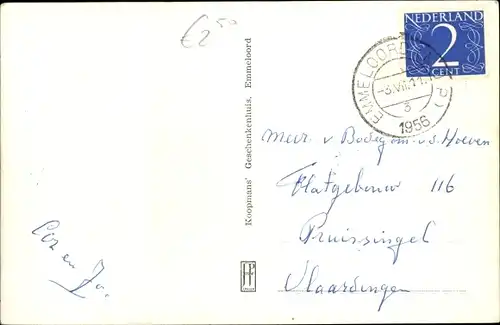 €2,50
NEDERLAND
2
CENT
EMMELOORD
-3.VIII.11.
3
1956
Koopmans' Geschenkenhuis, Emmeloord
Mevr. v Bodegom-v.d. Hoeven
Flatgebouw 116
Pruissingel
Vlaardingen
en Jo.
HP